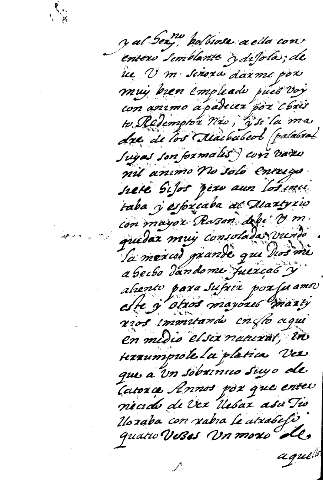 y al Ser.no bolbiose a ella con
entero semblante y dijola; de
ue V m. señora darme por
muy bien empleado pues voy
con animo a padecer por Chris
to Redemptor Nro; y si la ma
dre de los Machabeos (palabras
suyas son formales) con varo
nil animo No solo entrego
siete hijos pero aun los inci
taba y esforçaba al Martyrio
con mayor Razon debe V m.
quedar muy consolada viendo
la merced grande que Dios me
a hecho dandome fuerças y
aliento para sufrir por su amor
este y otros mayores marty
rios imitando en esto aqui
en medio el ser natural, In
terrumpiole la platica Ver
que a un sobrinico suyo de
catorce Annos por que enter
necido de Ver llebar a su Tio
lloraba con rabia le atrabeso
quatro Vezes Un moro de
aque